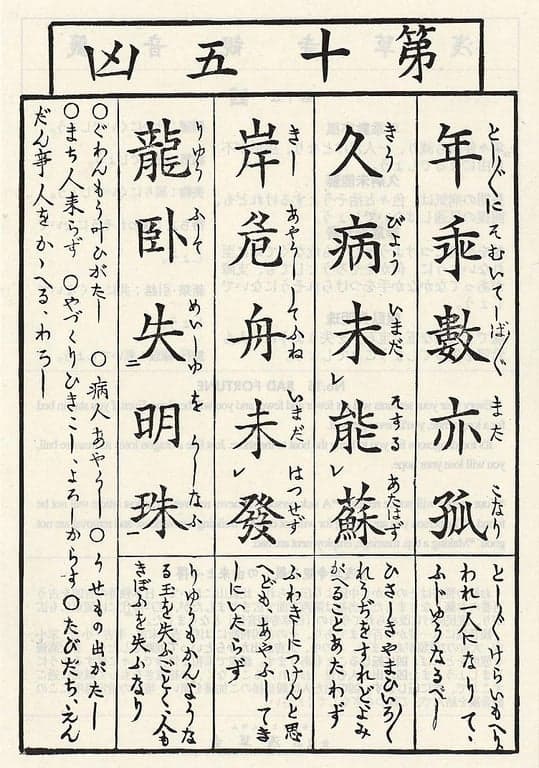 第十五凶
とし〲にそむいてしば〲 また こなり
年乖數亦孤
きうびよう いまだ そする あたはず
久病未レ能レ蘇
きし あやうしてふね いまだ はつせず
岸危舟未レ發
りゆう ふして めいしゆ を うしなふ
龍卧失二明珠一
とし〲けらいもへり
われ一人になりて、
ふじゆうなるべし
ひさしきやまひいろ〱
れうぢすれどよみ
がへることあたわず
ふねきしにつけんと思
ども、あやふしてき
しにいたらず
りゆうもかんような
る玉を失ふごとく、人も
きぼふを失ふなり
○ぐわんもう叶ひがたし ○病人あやうし ○うせもの出がたし
○まち人来らず ○やづくりひきこしよろしからず ○たびだち、えん
だん事人をかゝへる、わろし